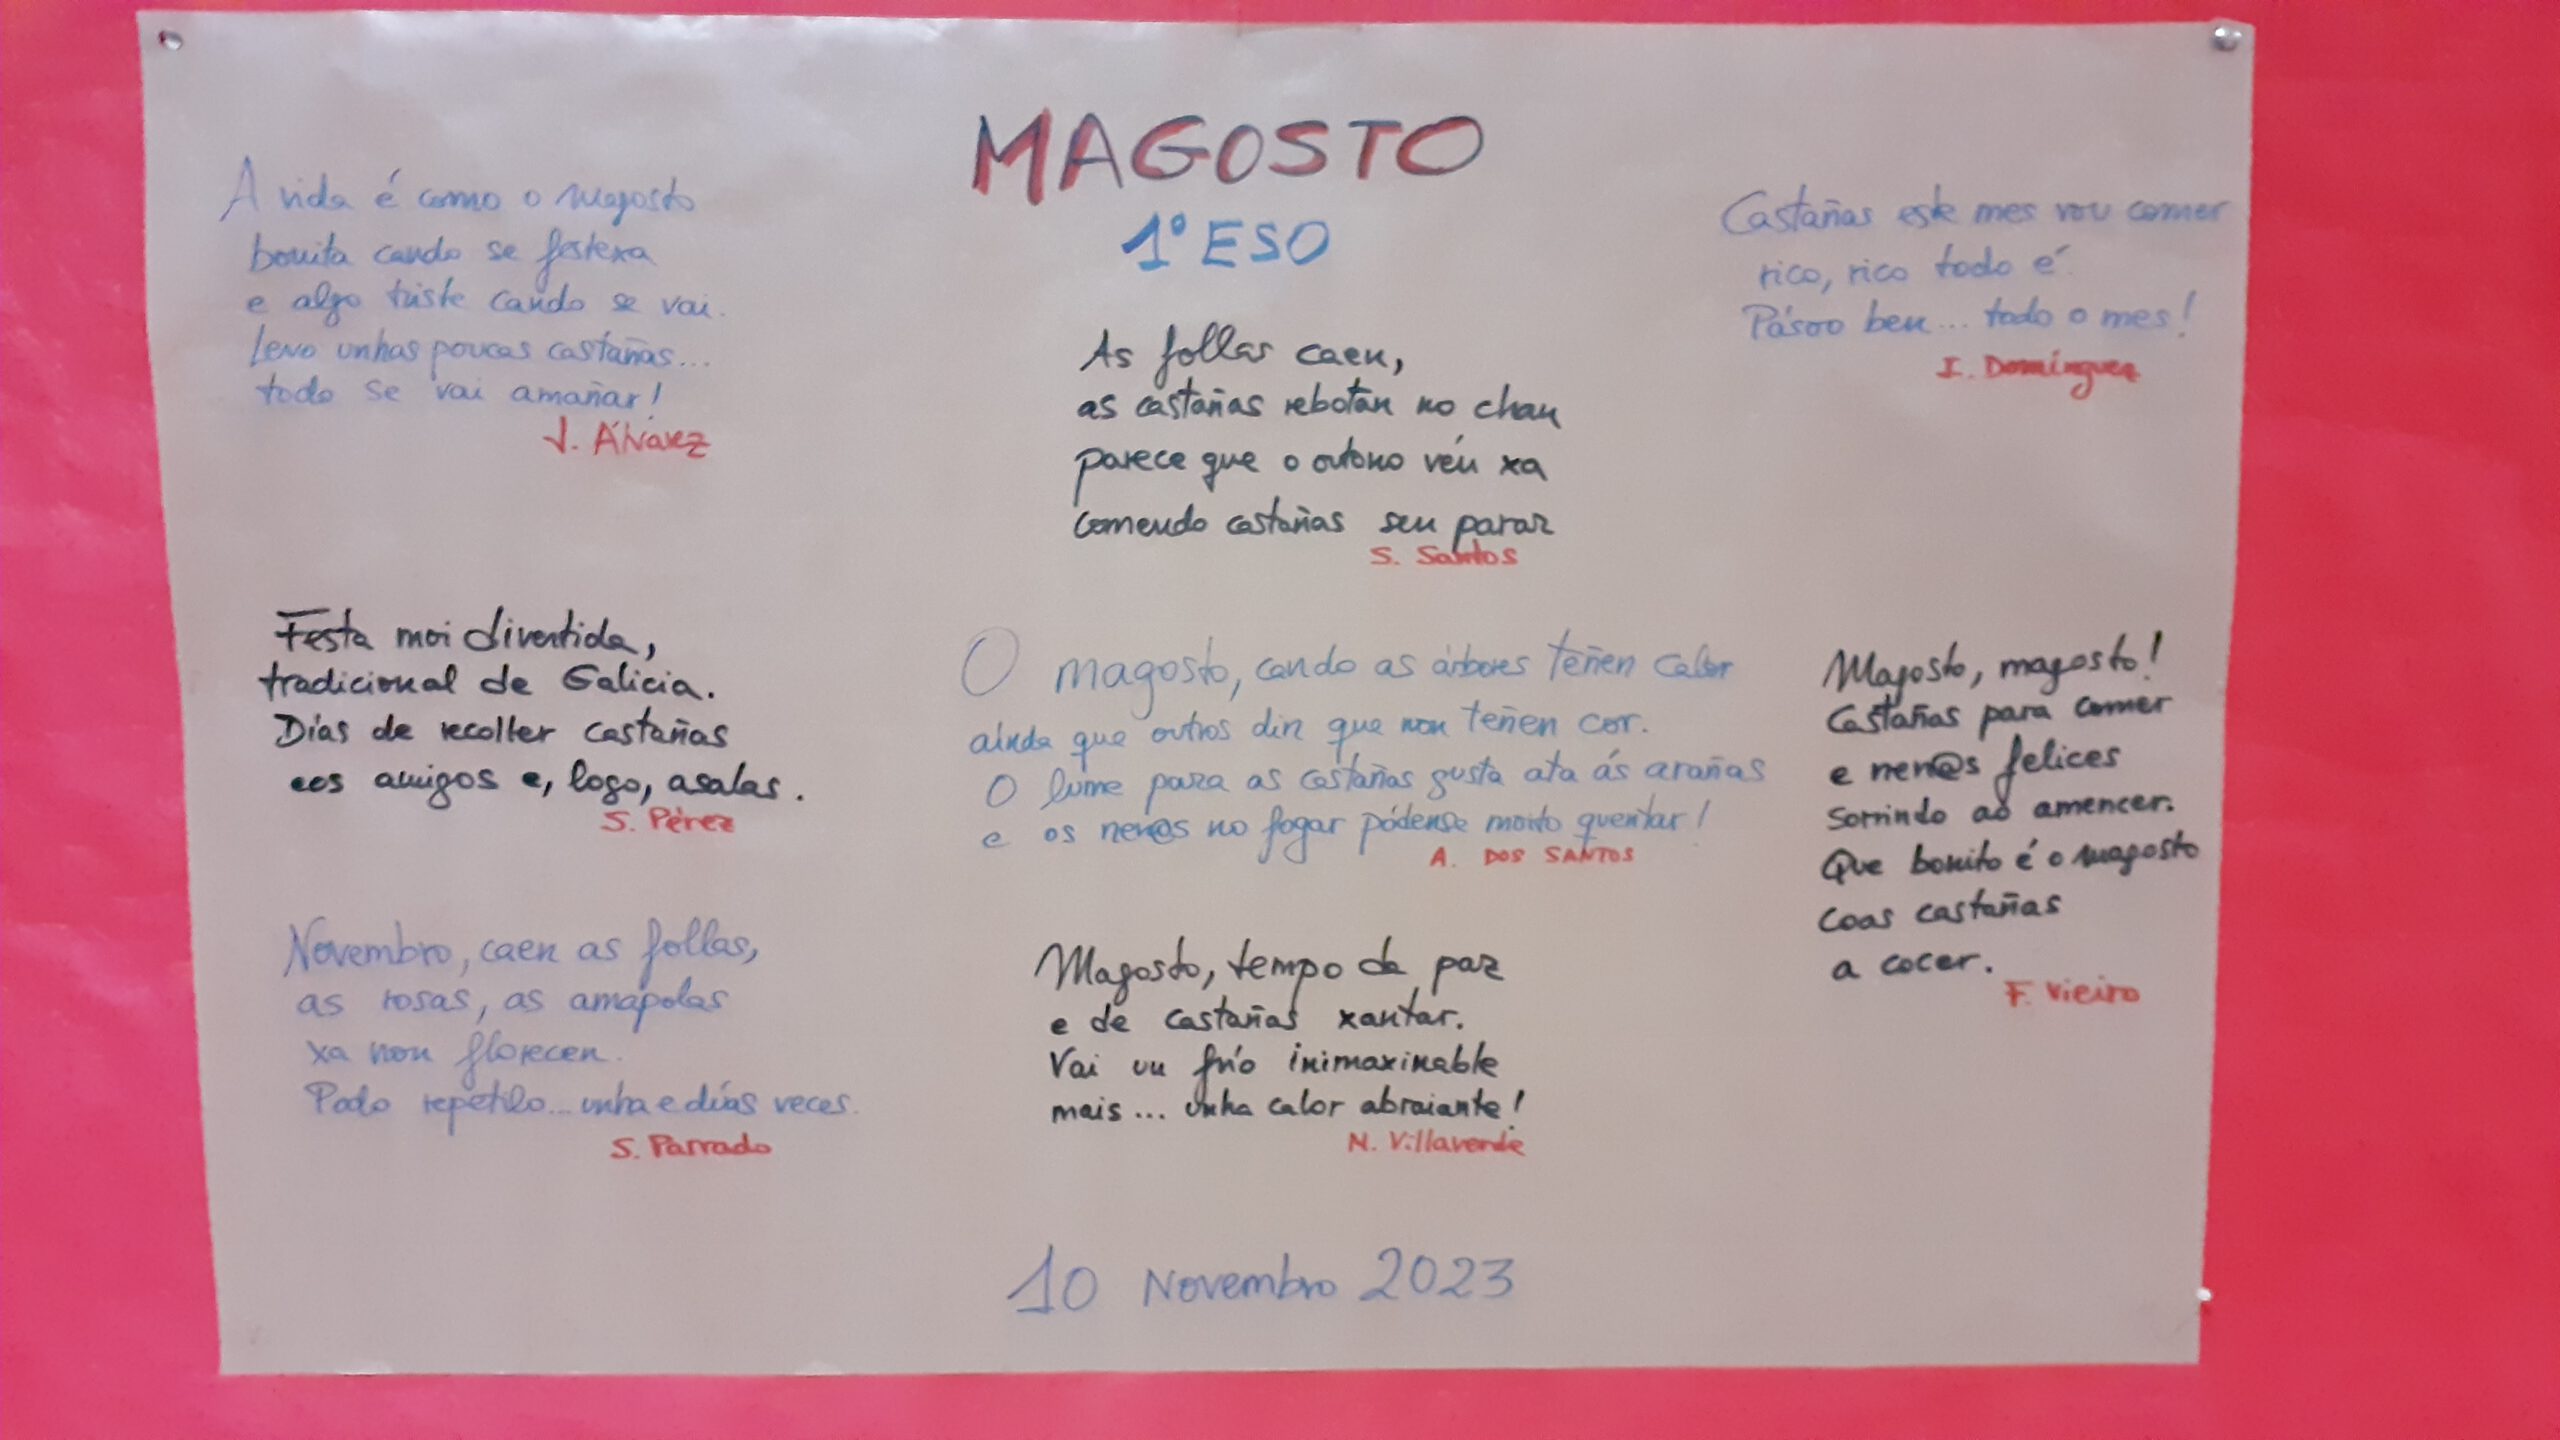 MAGOSTO
1º ESO
A vida é como o magosto
bonita cando se festexa
e algo triste cando se vai.
Levo unhas poucas castañas...
todo se vai amañar!
J. Álvarez
As follas caen,
as castañas rebotan no chan
parece que o outono vén xa
comendo castañas sen parar
S. Santos
Castañas este mes vou comer
rico, rico todo é
Pásoo ben... todo o mes!
I. Domínguez
Festa moi divertida,
tradicional de Galicia.
Días de recoller castañas
cos amigos e, logo, asalas.
S. Pérez
O magosto, cando as árbores teñen calor
aínda que outros din que non teñen cor.
O lume para as castañas gusta ata ás arañas
e os nen@s no fogar pódense moito quentar!
A. DOS SANTOS
Magosto, magosto!
Castañas para comer
e nen@s felices
sorrindo ao amencer.
Que bonito é o magosto
coas castañas
a cocer.
F. Vieiro
Novembro, caen as follas,
as rosas, as amapolas
xa non florecen.
Podo repetilo... unha e dúas veces.
S. Parrado
Magosto, tempo de paz
e de castañas xantar.
Vai un frío inimaxinable
mais... unha calor abraiante!
N. Villaverde
10 Novembro 2023